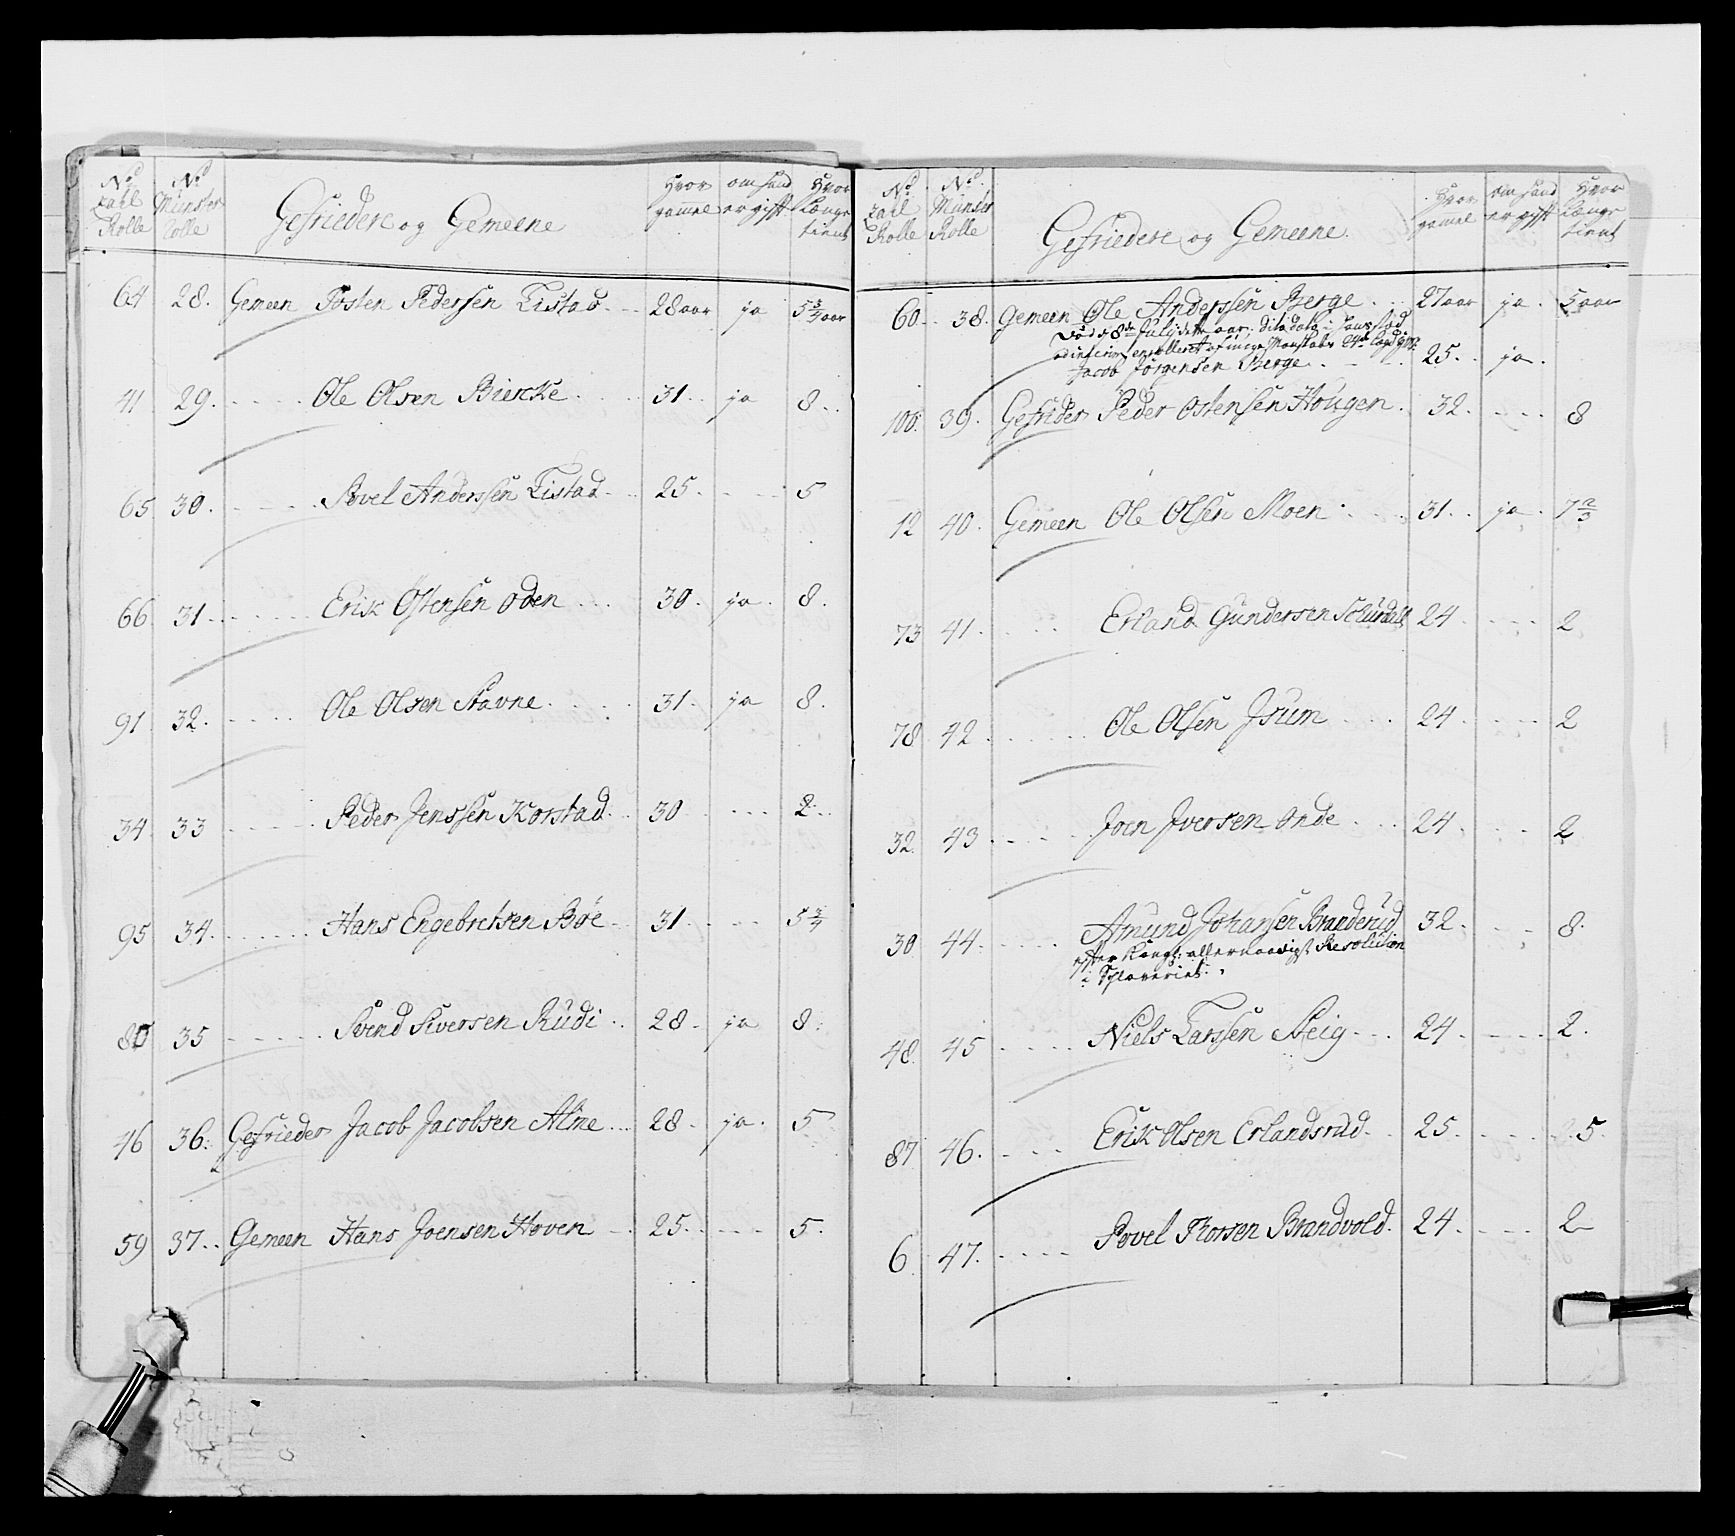 No Zahl Rolle | No Münster Rolle | Gefriedere og Gemeene | Hvor gammel | om hand er gift | Hvor længe tient
64 28. Gemeen Tosten Pedersen Listad 28 aar ja 5 3/4 aar
41 29. Ole Olsen Biercke 31 ja 8
65 30. Povel Anderssen Listad 25 5
66 31 Erik Ostensen Oden 30 ja 8
91 32. Ole Olsen Stavne 31 ja 8
34 33 Peder Jenssen Korstad 30 2
95 34. Hans Engebretsen Bøe 31 5 3/4
80 35 Svend Siversen Rudi 28 ja 8
46 36. Gefrieder Jacob Jacobsen Alme 28 ja 5
59 37. Gemeen Hans Joensen Hoven 25 5
No Zahl Rolle | No Münster Rolle | Gefriedere og Gemeene | Hvor gammel | om hand er gift | Hvor længe tient
60 38. Gemeen Ole Anderssen Berge 27 aar ja 5 aar
Død 8de Julij dette aar. Dito dato i hans sted
enrolleret af unge Mandskabs
Jacob Jørgensen Berge 25 ja
100. 39. Gefrider Peder Ostensen Hougen 32 8
12 40. Gemeen Ole Olsen Moen 31 ja 7 2/3
73 41. Erland Gundersen 24 2
78 42 Ole Olsen Isum 24 2
32 43 Joen Iversen Onde 24 2
30 44. Amund Johansen Branderud 32 8
efter Kongl: allernaadigst Resolution
i Slaveriet.
48 45 Niels Larssen Steig 24 2
87 46. Erik Olsen Erlandsrud 25 5
6 47. Povel Thorsen Brandvold 24 2